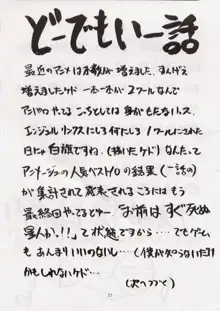 どーでもいー話
最近のアニメは本数が増えました。まんげえ
増えましたケド 一本一本が2クールなんで
アニパロやってるこっちとしては身がもたないッス。
エンジェルリンクスにしろ何にしろ1クールにされた
日にゃ白旗ですね。(描いたケド)なんたって
アニメージュの人気ベスト10の結果(一話の)
が集計されて発表されるころにはもう
最終回やってるとゆー。「お前はすぐ死ぬ
星人か!!」て状態ですから…でもゲーム
もあんまりいいのないし…(僕が知らないだけ
かもしれないケド…
(次へつづく)
21